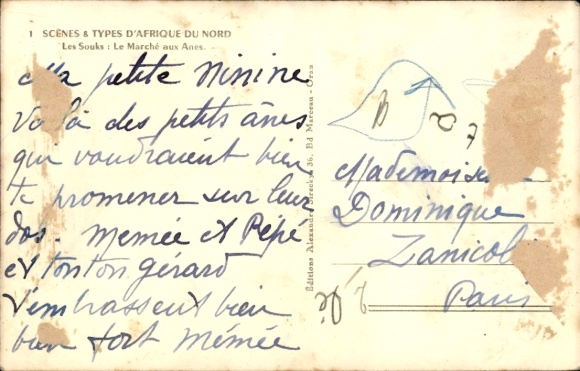 1 SCÈNES & TYPES D'AFRIQUE DU NORD
Les Souks : Le Marché aux Anes.
Ma petite Ninine
Voilà des petits ânes
qui voudraient bien
te promener sur leur
dos. Memée et Pépé
et tonton gérard
t'embrassent bien
bien fort Mémée
Editions Alexandre 36, Bd Marceau - Oran
Mademoise
Dominique
Zanicol
Paris